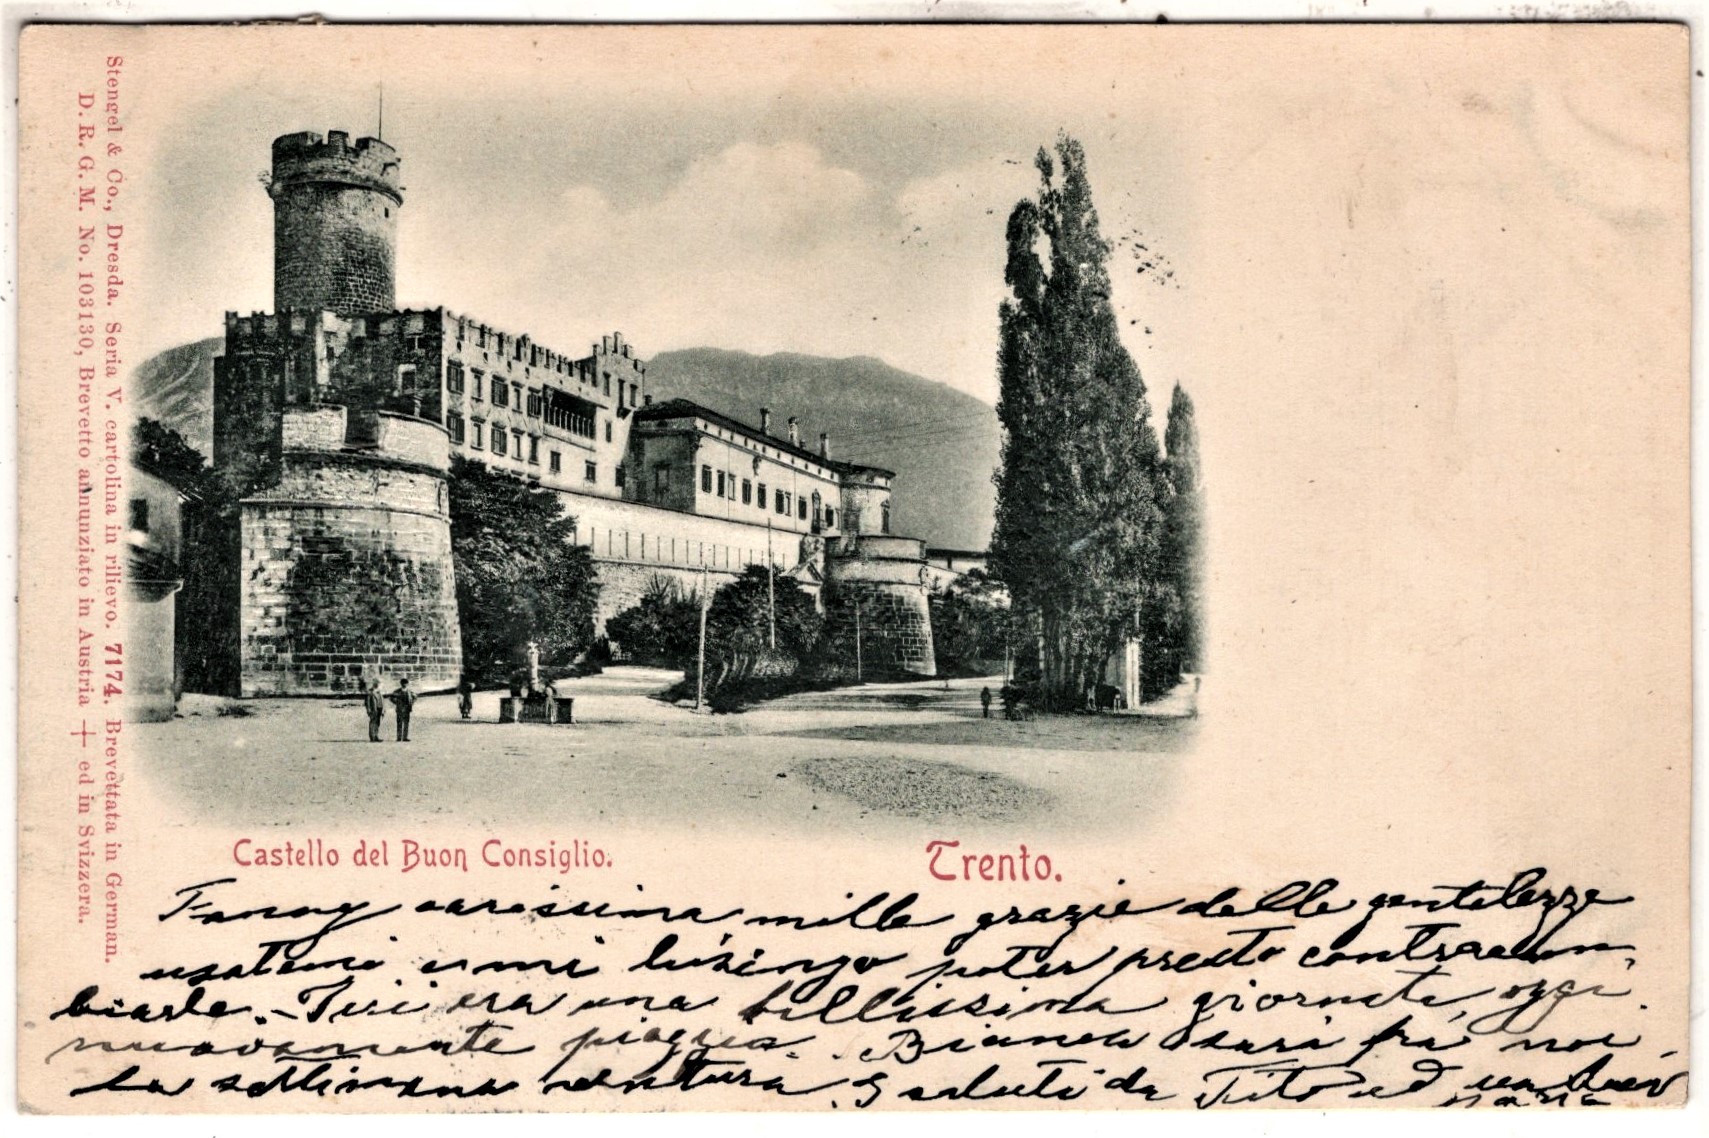 Stengel & Co., Dresda. Seria V. cartolina in rilievo. 7174. Brevettata in German.
D. R. G. M. No. 103130, Brevetto annunziato in Austria + ed in Svizzera.
Castello del Buon Consiglio.
Trento.
Fanny carissima mille grazie delle gentilezze
usatemi e mi lusingo poter presto contraccam-
biarle. - Ieri era una bellissima giornata, oggi
nuovamente pioggia. Bianca sarà fra noi
la settimana ventura. Saluti da Tito ed un
Maria